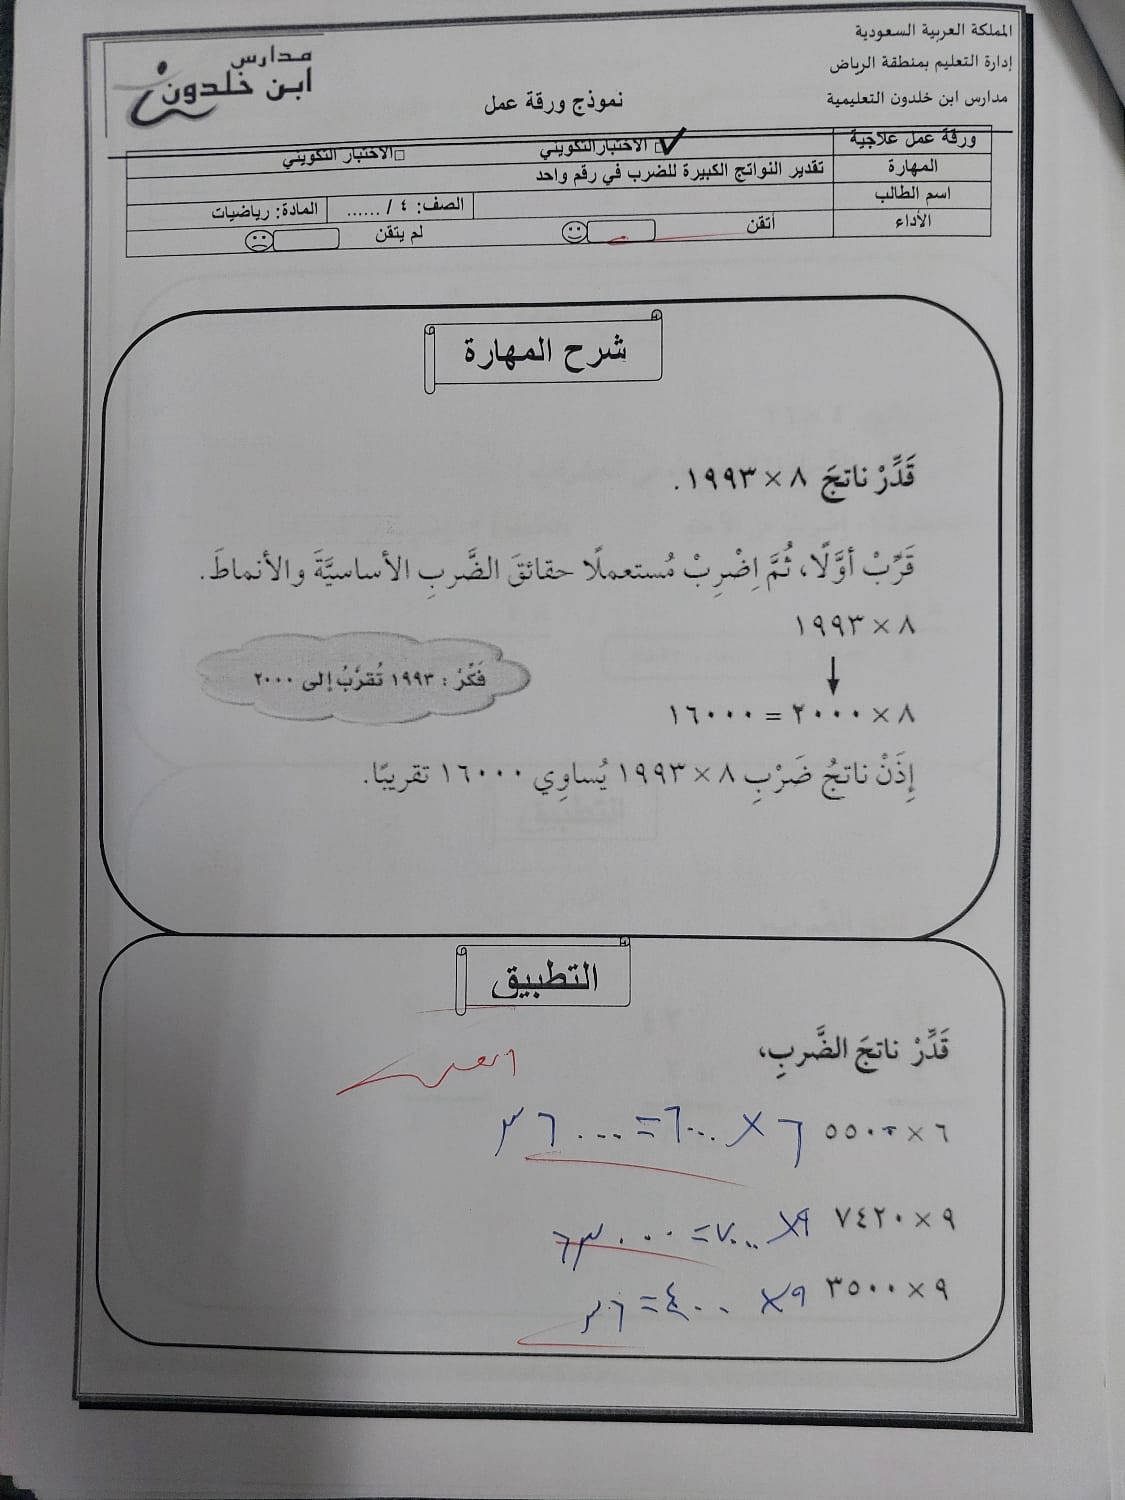 المملكة العربية السعودية
إدارة التعليم بمنطقة الرياض
مدارس ابن خلدون التعليمية
نموذج ورقة عمل
مدارس
ابن خلدون
ورقة عمل علاجية ☑ الاختبار التكويني □ الاختبار التكويني
المهارة تقدير النواتج الكبيرة للضرب في رقم واحد
اسم الطالب الصف: ٤ / ...... المادة: رياضيات
الأداء أتقن لم يتقن
شرح المهارة
قَدِّرْ ناتجَ ٨ × ١٩٩٣.
قَرِّبْ أوَّلًا، ثُمَّ اِضْرِبْ مُستعملًا حقائقَ الضَّربِ الأساسيَّةَ والأنماطَ.
٨ × ١٩٩٣
فَكِّرْ : ١٩٩٣ تُقرَّبُ إلى ٢٠٠٠
٨ × ٢٠٠٠ = ١٦٠٠٠
إِذَنْ ناتجُ ضَرْبِ ٨ × ١٩٩٣ يُساوِي ١٦٠٠٠ تقريبًا.
التطبيق
قَدِّرْ ناتجَ الضَّربِ،
أتقن
٦ × ٥٥٠٢ ٦ × ٦٠٠٠ = ٣٦٠٠٠
٩ × ٧٤٢٠ ٩ × ٧٠٠٠ = ٦٣٠٠٠
٩ × ٣٥٠٠ ٩ × ٤٠٠٠ =